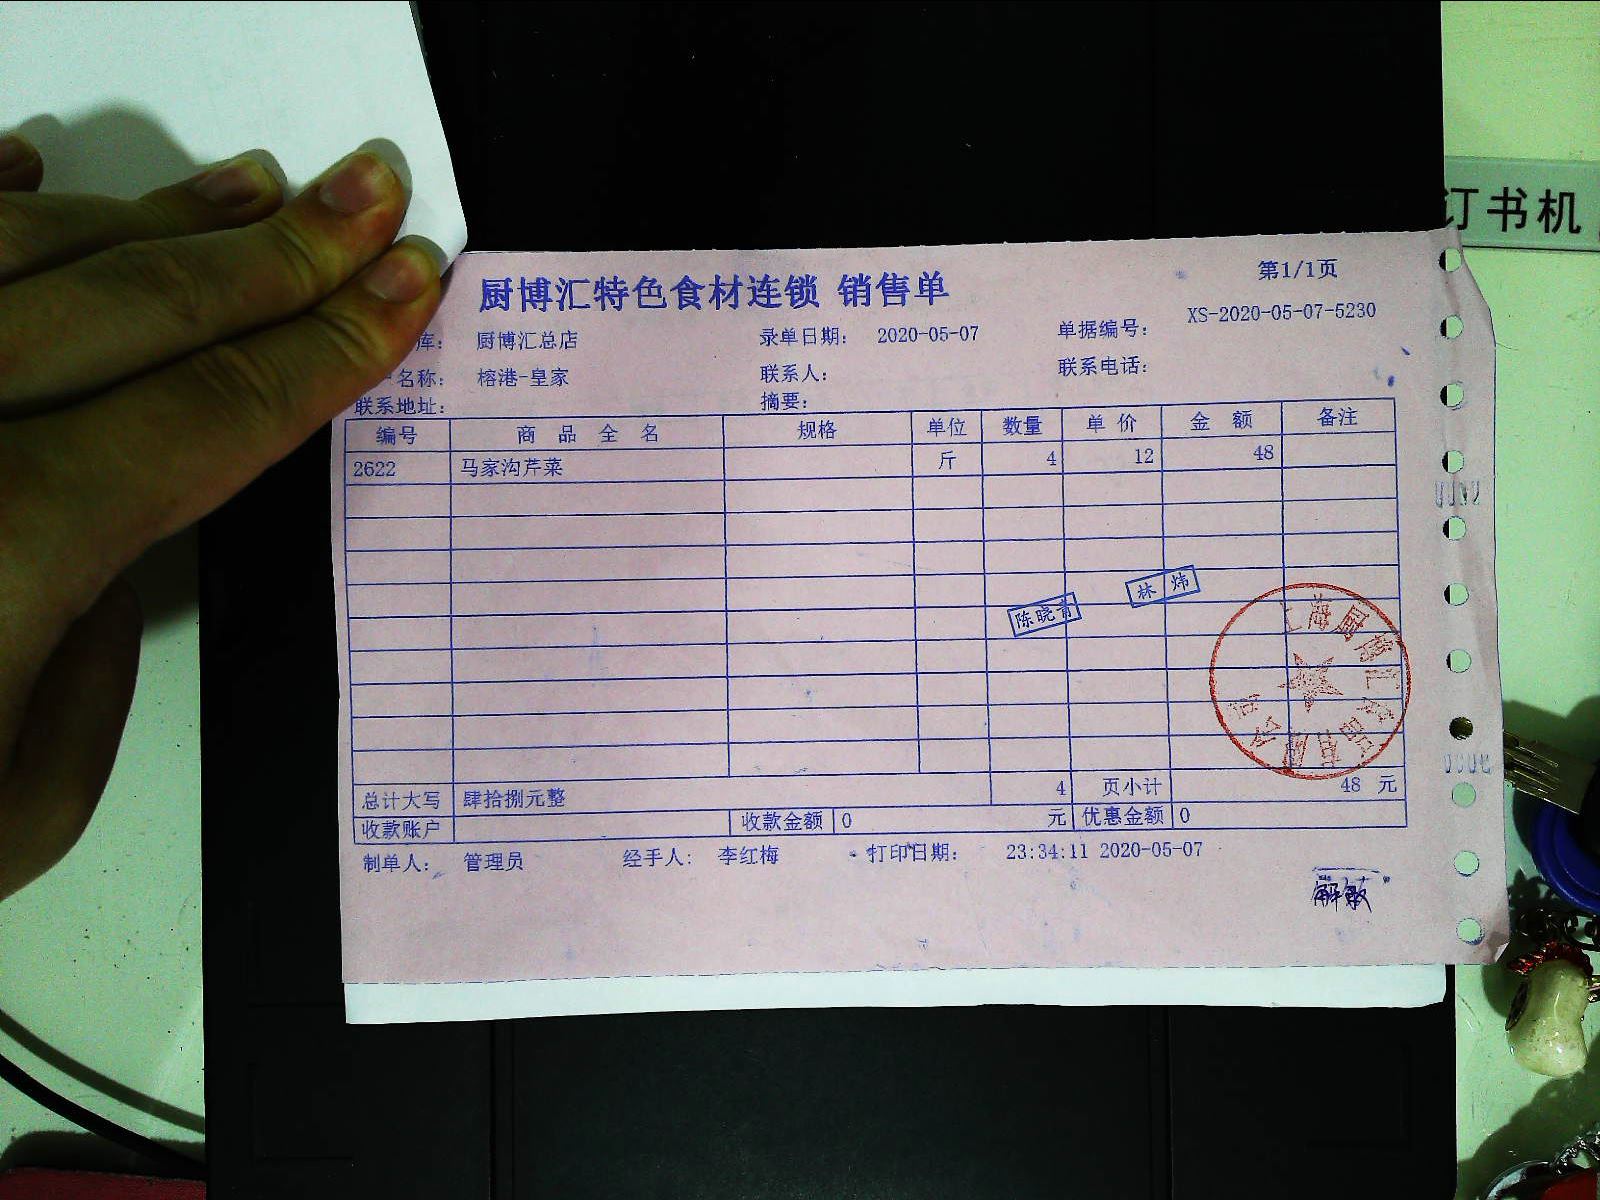 订书机
厨博汇特色食材连锁 销售单
第1/1页
库： 厨博汇总店 录单日期： 2020-05-07 单据编号： XS-2020-05-07-5230
名称： 榕港-皇家 联系人： 联系电话：
联系地址： 摘要：
编号 商品全名 规格 单位 数量 单价 金额 备注
2622 马家沟芹菜 斤 4 12 48
林炜
陈晓青
上海厨博汇食品有限公司
总计大写 肆拾捌元整 4 页小计 48 元
收款账户 收款金额 0 元 优惠金额 0
制单人： 管理员 经手人： 李红梅 打印日期： 23:34:11 2020-05-07
解敏